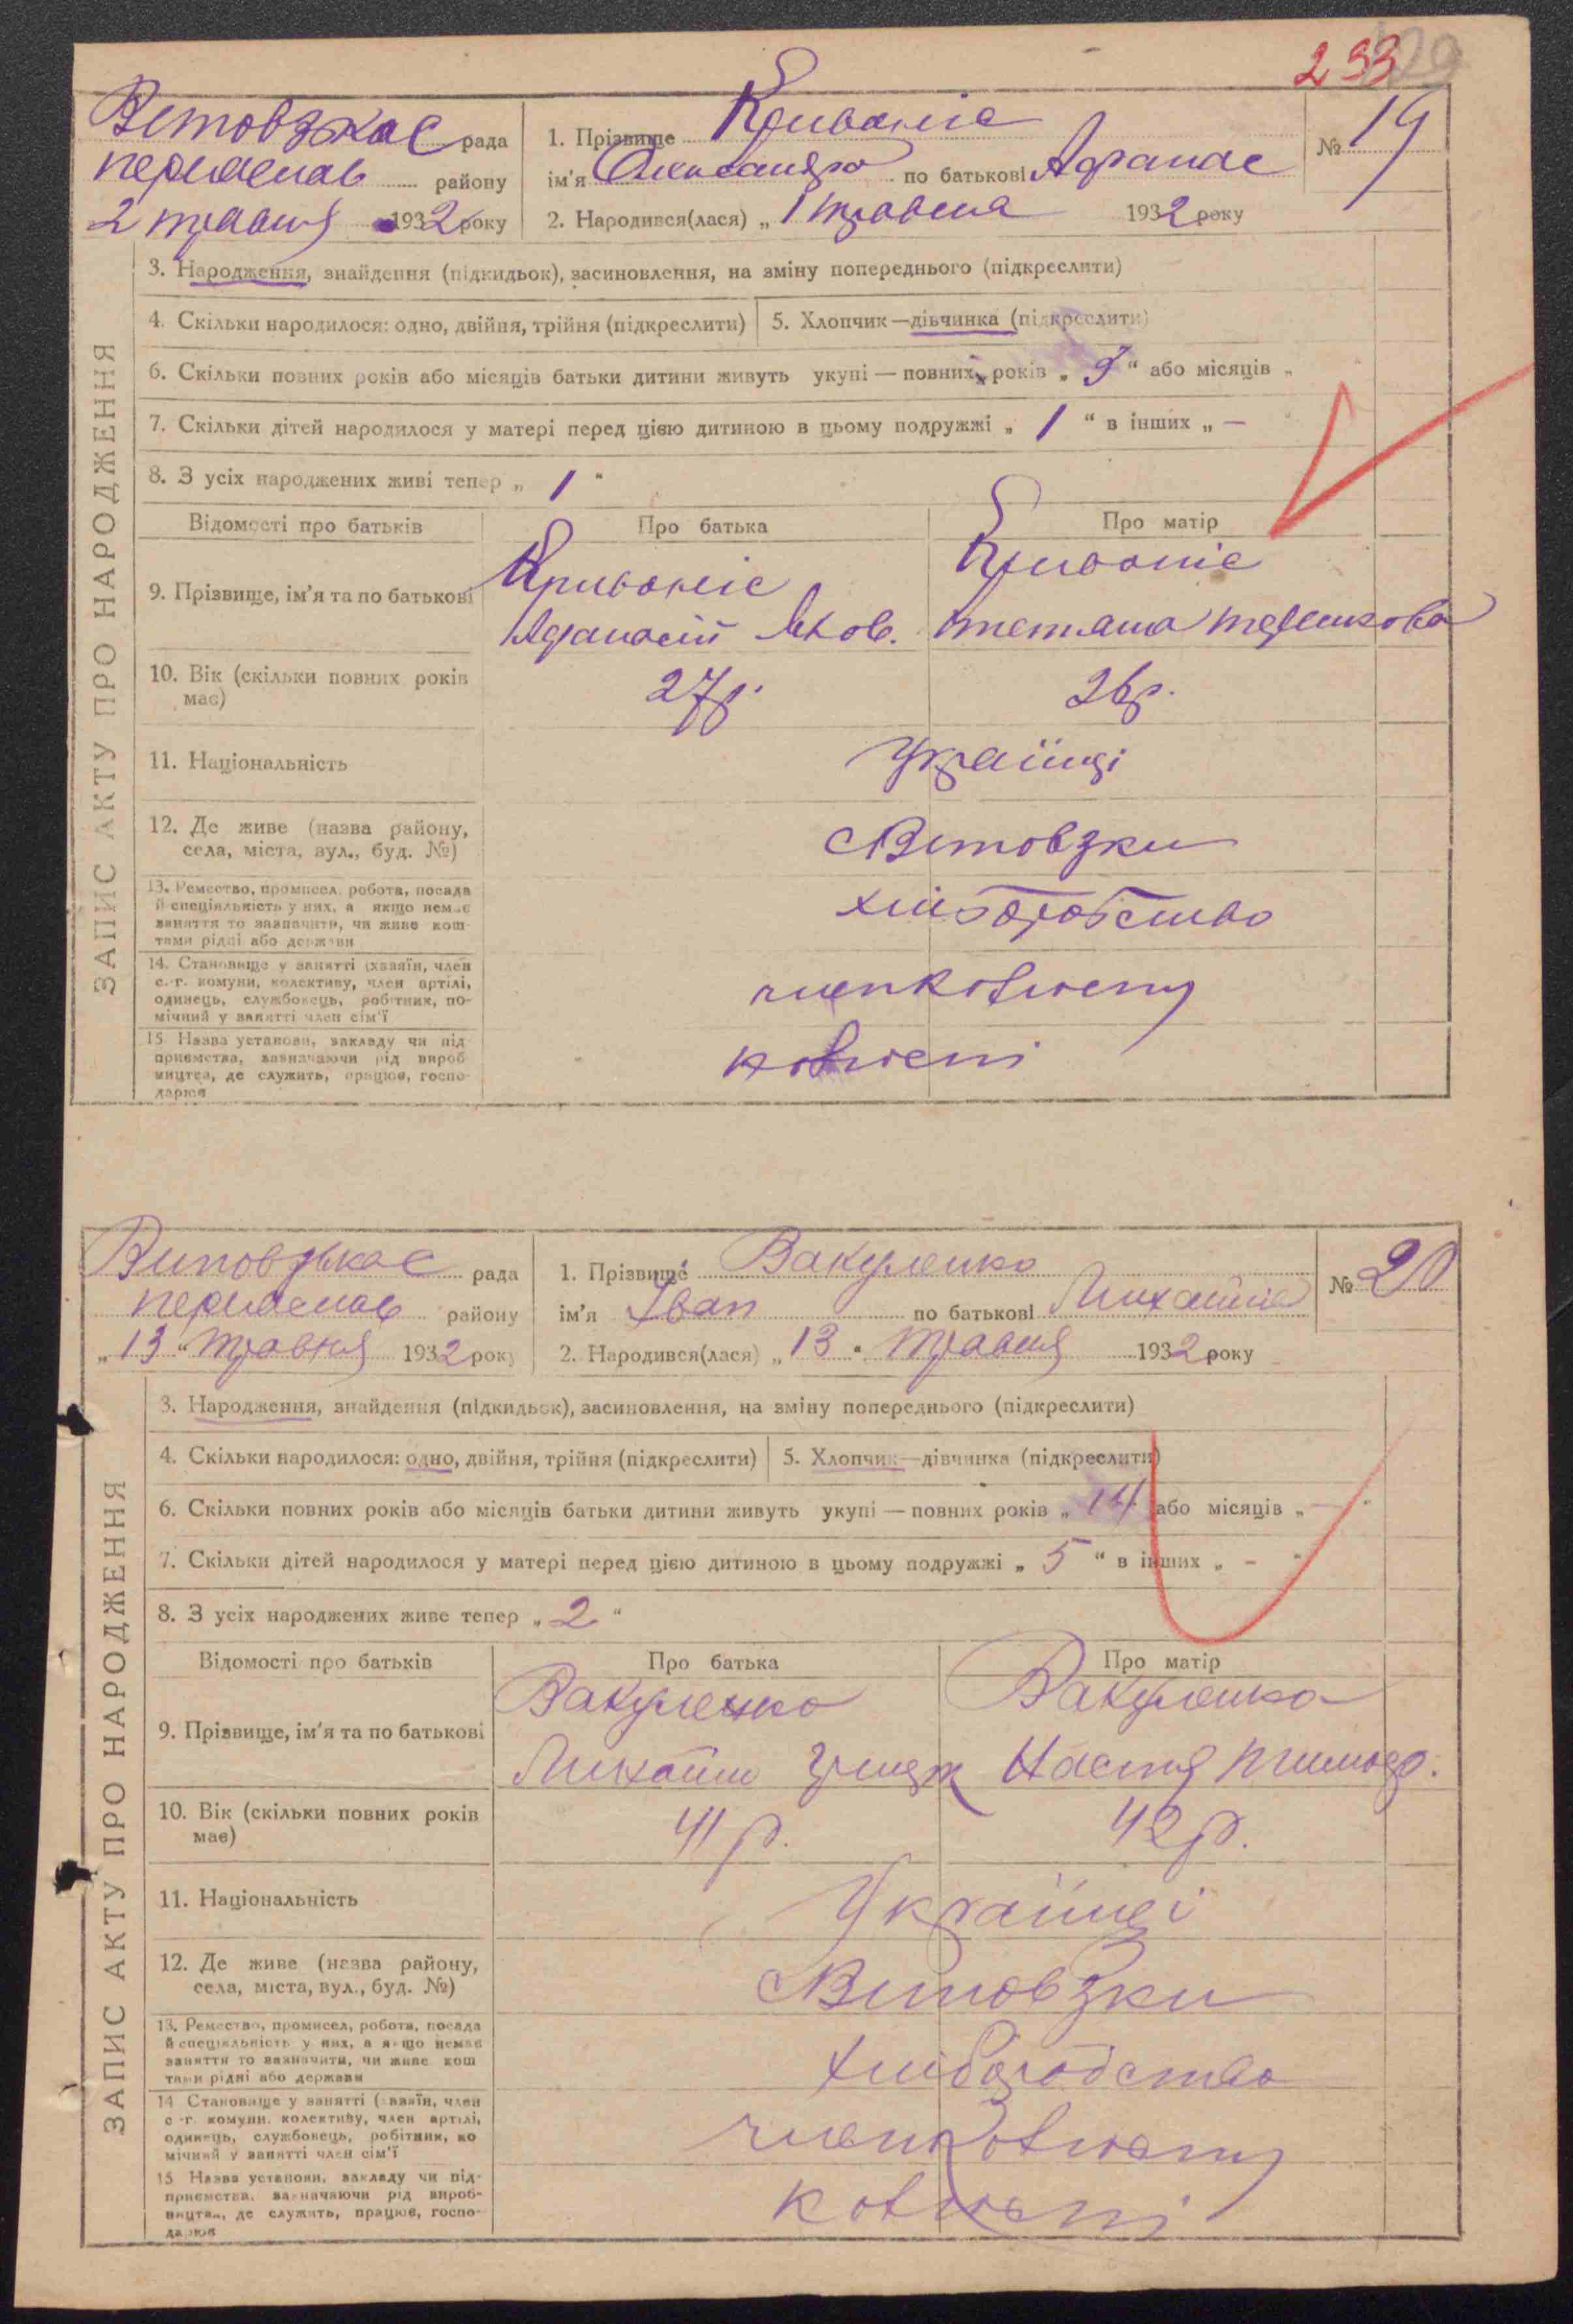 233
29
Витовзкає рада
переяслав району
2 травня 1932 року
1. Прізвище Кривоніс
ім'я Олександра по батькові Афанас
№ 19
2. Народився(лася) „ 1 травня 1932 року
ЗАПИС АКТУ ПРО НАРОДЖЕННЯ
3. Народження, знайдення (підкидьок), засиновлення, на зміну попереднього (підкреслити)
4. Скільки народилося: одно, двійня, трійня (підкреслити)
5. Хлопчик—дівчинка (підкреслити)
6. Скільки повних років або місяців батьки дитини живуть укупі — повних років „ 9 “ або місяців „
7. Скільки дітей народилося у матері перед цією дитиною в цьому подружжі „ 1 “ в інших „ — “
8. З усіх народжених живі тепер „ 1 “
Відомості про батьків Про батька Про матір
9. Прізвище, ім'я та по батькові
Кривоніс Кривоніс
Афанасій Яков. Тетяна
10. Вік (скільки повних років має)
27р. 26р.
11. Національність
Українці
12. Де живе (назва району,
села, міста, вул., буд. №)
с Витовзки
13. Ремество, промисел, робота, посада
й спеціяльність у них, а якщо немає
заняття то зазначити, чи живе кош-
тами рідні або держави
хліборобство
14. Становище у занятті (хазяїн, член
с.-г. комуни, колективу, член артілі,
одинець, службовець, робітник, по-
мічний у занятті член сім'ї
член колгоспу
15. Назва установи, закладу чи під-
приємства, зазначаючи рід вироб-
ництва, де служить, працює, госпо-
дарює
колгоспі
Виповзькає рада
переяслав району
„ 13 “ травня 1932 року
1. Прізвище Вакуленко
ім'я Іван по батькові Михайлів
№ 20
2. Народився(лася) „ 13 “ травня 1932 року
ЗАПИС АКТУ ПРО НАРОДЖЕННЯ
3. Народження, знайдення (підкидьок), засиновлення, на зміну попереднього (підкреслити)
4. Скільки народилося: одно, двійня, трійня (підкреслити)
5. Хлопчик—дівчинка (підкреслити)
6. Скільки повних років або місяців батьки дитини живуть укупі — повних років „ 14 або місяців „ — “
7. Скільки дітей народилося у матері перед цією дитиною в цьому подружжі „ 5 “ в інших „ - “
8. З усіх народжених живе тепер „ 2 “
Відомості про батьків Про батька Про матір
9. Прізвище, ім'я та по батькові
Вакуленко Вакуленко
Михайло Настя
10. Вік (скільки повних років має)
41 р. 42 р.
11. Національність
Українці
12. Де живе (назва району,
села, міста, вул., буд. №)
с Виповзки
13. Ремество, промисел, робота, посада
й спеціяльність у них, а якщо немає
заняття то зазначити, чи живе кош
тами рідні або держави
хліборобство
14 Становище у занятті (хазяїн, член
с.-г. комуни, колективу, член артілі,
одинець, службовець, робітник, по
мічний у занятті член сім'ї
член колгоспу
15 Назва установи, закладу чи під-
приємства, зазначаючи рід вироб-
ництва, де служить, працює, госпо-
дарює
колгоспі